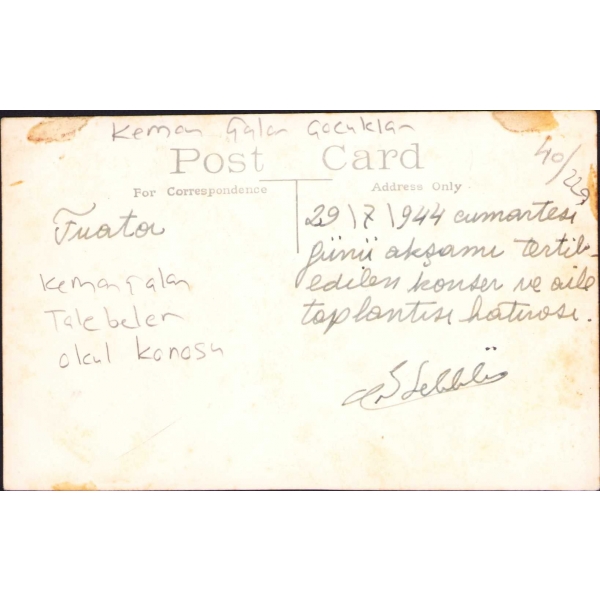 Keman Çalan Çocuklar
Post Card
For Correspondence
Address Only
40/229
Fuata
Keman Çalan
Talebeler
okul konosu
29\7\1944 cumartesi
günü akşamı tertib-
edilen konser ve aile
toplantısı hatırası.